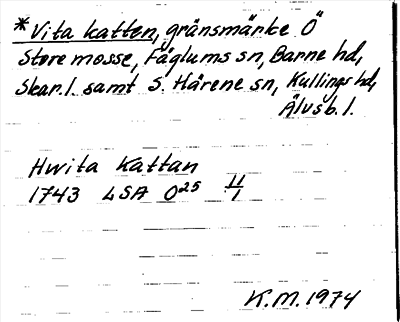 *Vita katten, gränsmärke Ö
Store mosse, Fåglums sn, Barne hd,
Skar. l. samt S. Härene sn, Kullings hd,
Älvsb. l.
Hwita Kattan
1743 LSA O25 11/1
K.M. 1974